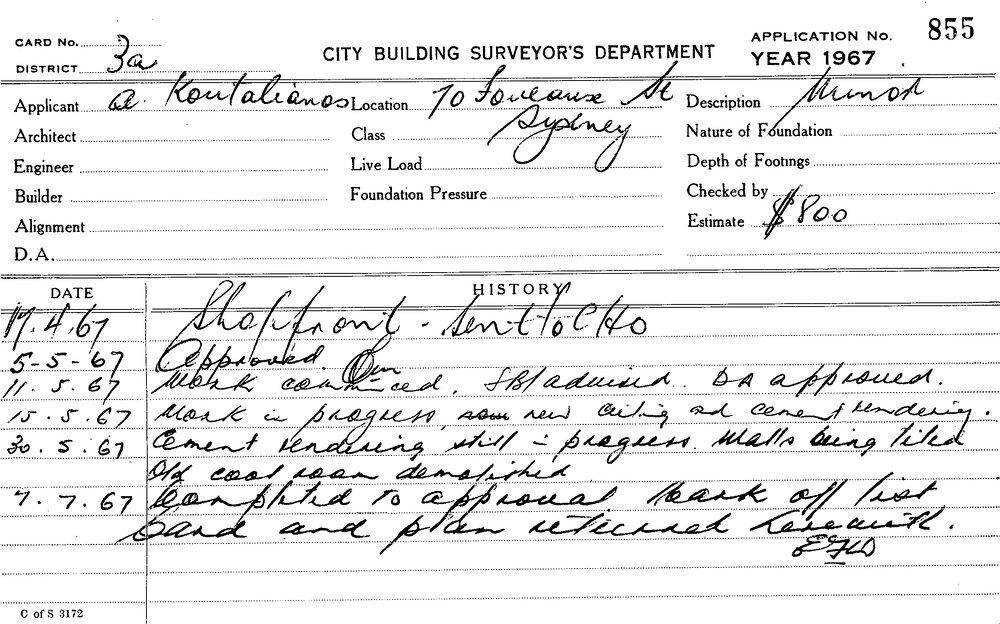 CARD No.
DISTRICT 3a
CITY BUILDING SURVEYOR'S DEPARTMENT
APPLICATION No. 855
YEAR 1967
Applicant A. Koutalianos Location 70 Foveaux St Sydney Description Minor
Architect Class Nature of Foundation
Engineer Live Load Depth of Footings
Builder Foundation Pressure Checked by
Alignment Estimate $800
D.A.
DATE HISTORY
17.4.67 Shopfront - sent to CHO
5-5-67 Approved
11.5.67 Work commenced. advised. DA approved.
15.5.67 Work in progress, new ceiling and cement rendering.
30.5.67 Cement rendering still in progress. Walls being tiled
Old cool room demolished
7.7.67 Completed to approval mark off list
card and plan returned herewith.
C of S 3172